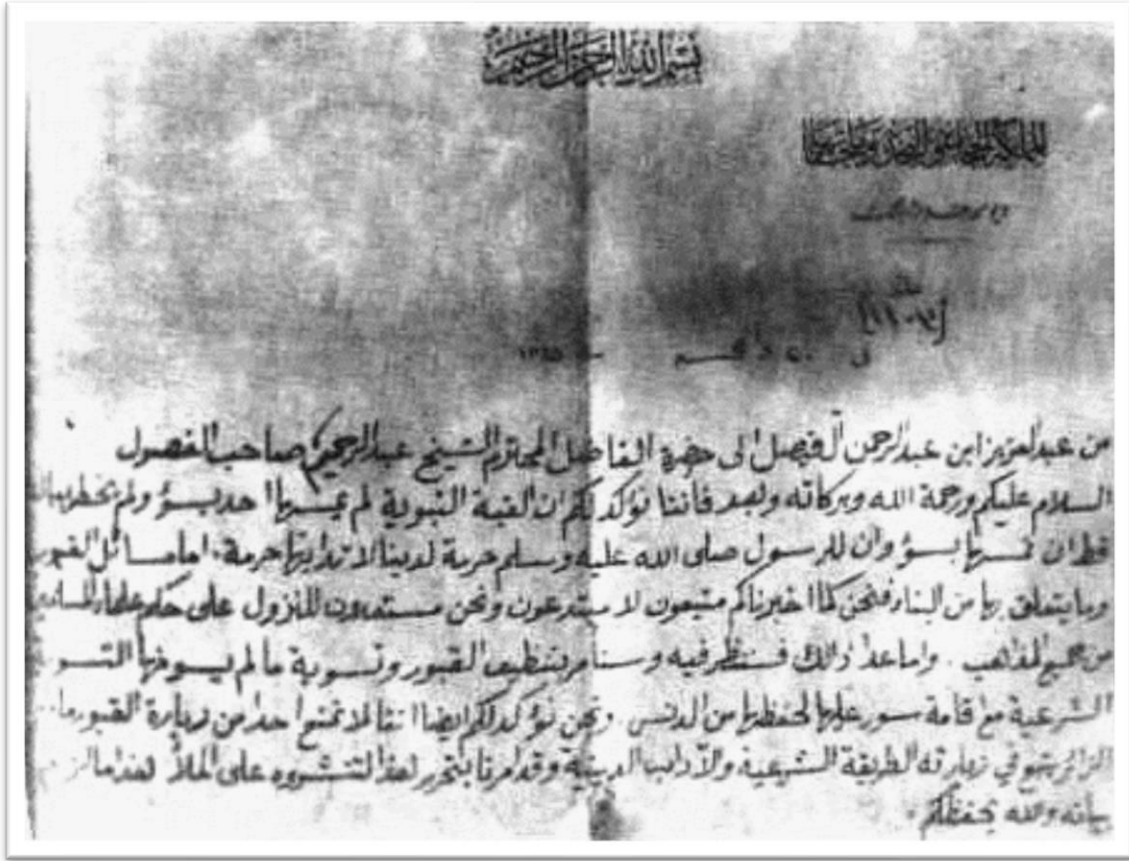 بسم الله الرحمن الرحيم
المملكة الحجازية النجدية وملحقاتها
في ٢٠ سنة ١٣٤٥
من عبدالعزيز ابن عبدالرحمن آل فيصل الى حضرة الفاضل المحترم الشيخ عبدالرحيم صاحب الفصول
السلام عليكم ورحمة الله وبركاته وبعد فاننا نؤكد لكم ان القبة النبوية لم يمسها احد بسؤ ولم يخطر
قط ان نمسها بسؤ وان للرسول صلى الله عليه وسلم حرمة لدينا لا تدانيها حرمة، اما مسائل القبور
وما يتعلق بها من البناء فنحن كما اخبرناكم متبعون لا مبتدعون ونحن مستعدون للنزول على حكم علماء
من جميع المذاهب . واما عدا ذالك فسننظر فيه وسنامر بتنظيف القبور وتسوية ما لم
الشرعية مع اقامة سور عليها لحفظها من الدنس . ونحن نؤكد لكم ايضا اننا لا نمنع احد من زيارة القبور ما
الزائر يتبع في زيارته الطريقة الشرعية والآداب الدينية وقد امرنا بتحرير هذا لتنشروه على الملأ هذا ما
بيانه والله يحفظكم .